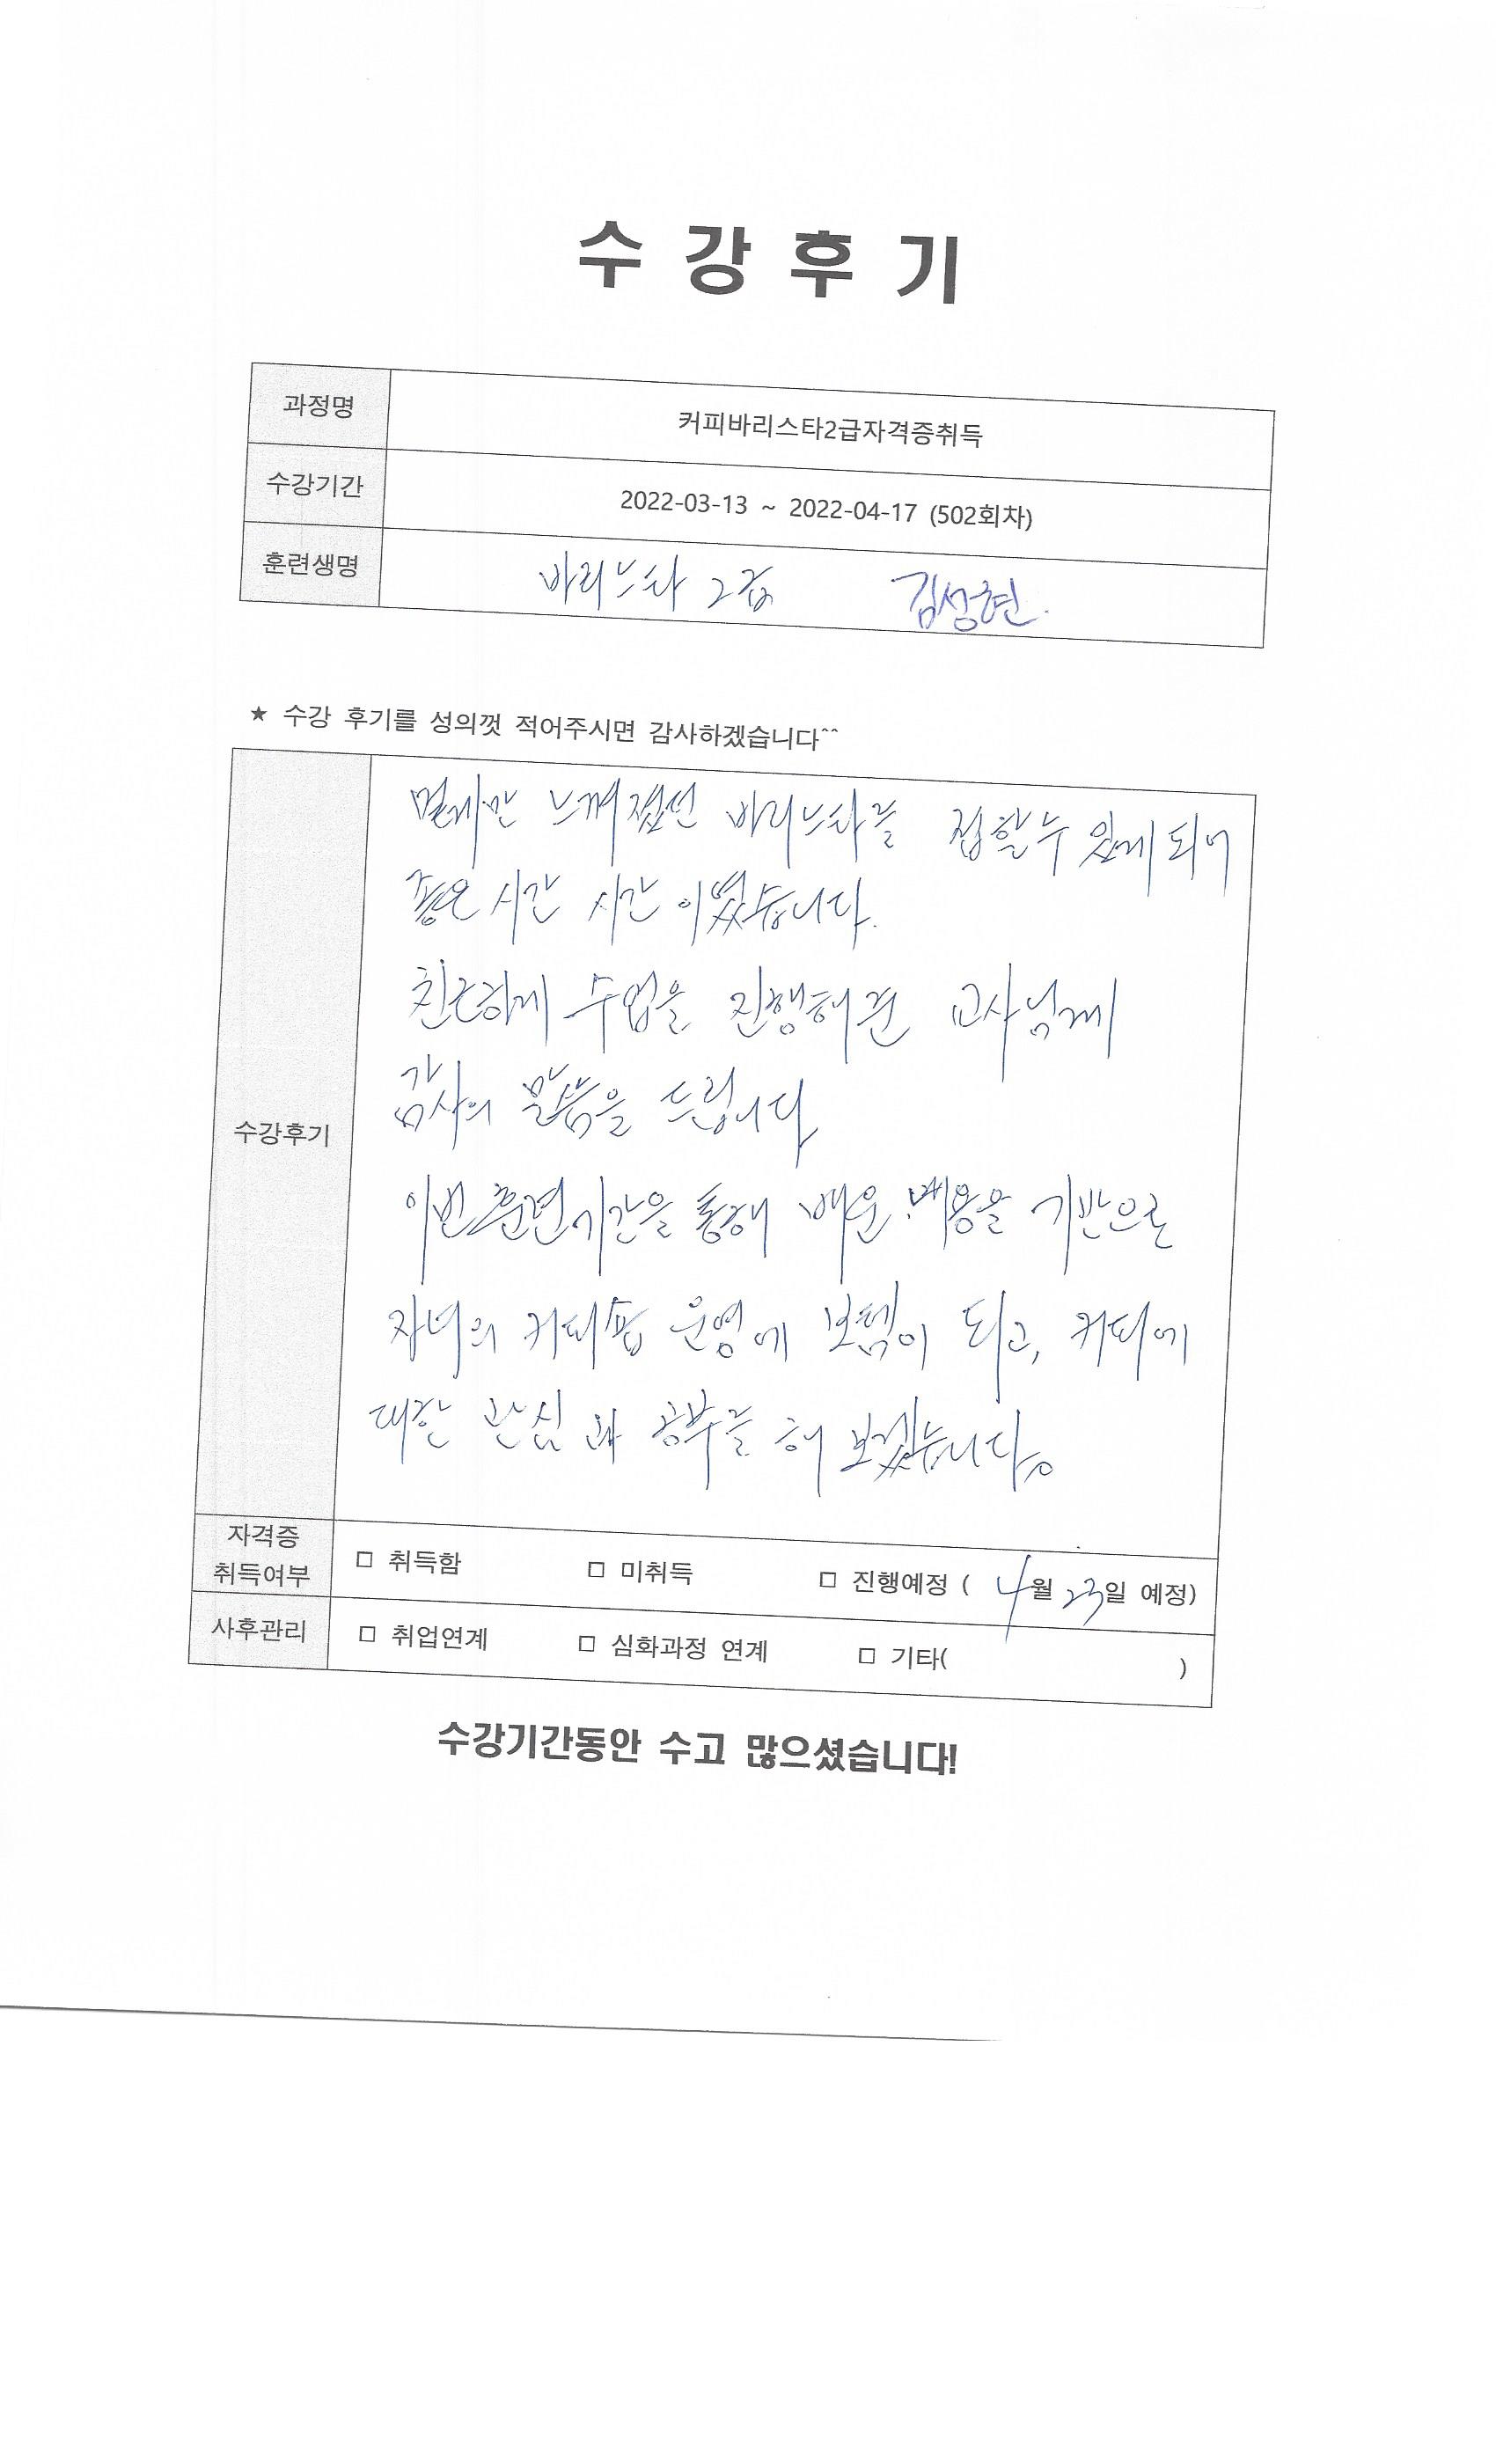 수 강 후 기
과정명 커피바리스타2급자격증취득
수강기간 2022-03-13 ~ 2022-04-17 (502회차)
훈련생명 바리스타 2급 김성현.
★ 수강 후기를 성의껏 적어주시면 감사하겠습니다^^
수강후기
멀게만 느껴졌던 바리스타를 접할수 있게 되어
좋은 시간 시간 이였습니다.
친근하게 수업을 진행해준 교사님께
감사의 말씀을 드립니다
이번 훈련기간을 통해 배운 내용을 기반으로
자녀의 커피숍 운영에 보탬이 되고, 커피에
대한 관심 과 공부를 해 보겠습니다.
자격증 취득여부 □ 취득함 □ 미취득 □ 진행예정 ( 4월 23일 예정)
사후관리 □ 취업연계 □ 심화과정 연계 □ 기타( )
수강기간동안 수고 많으셨습니다!